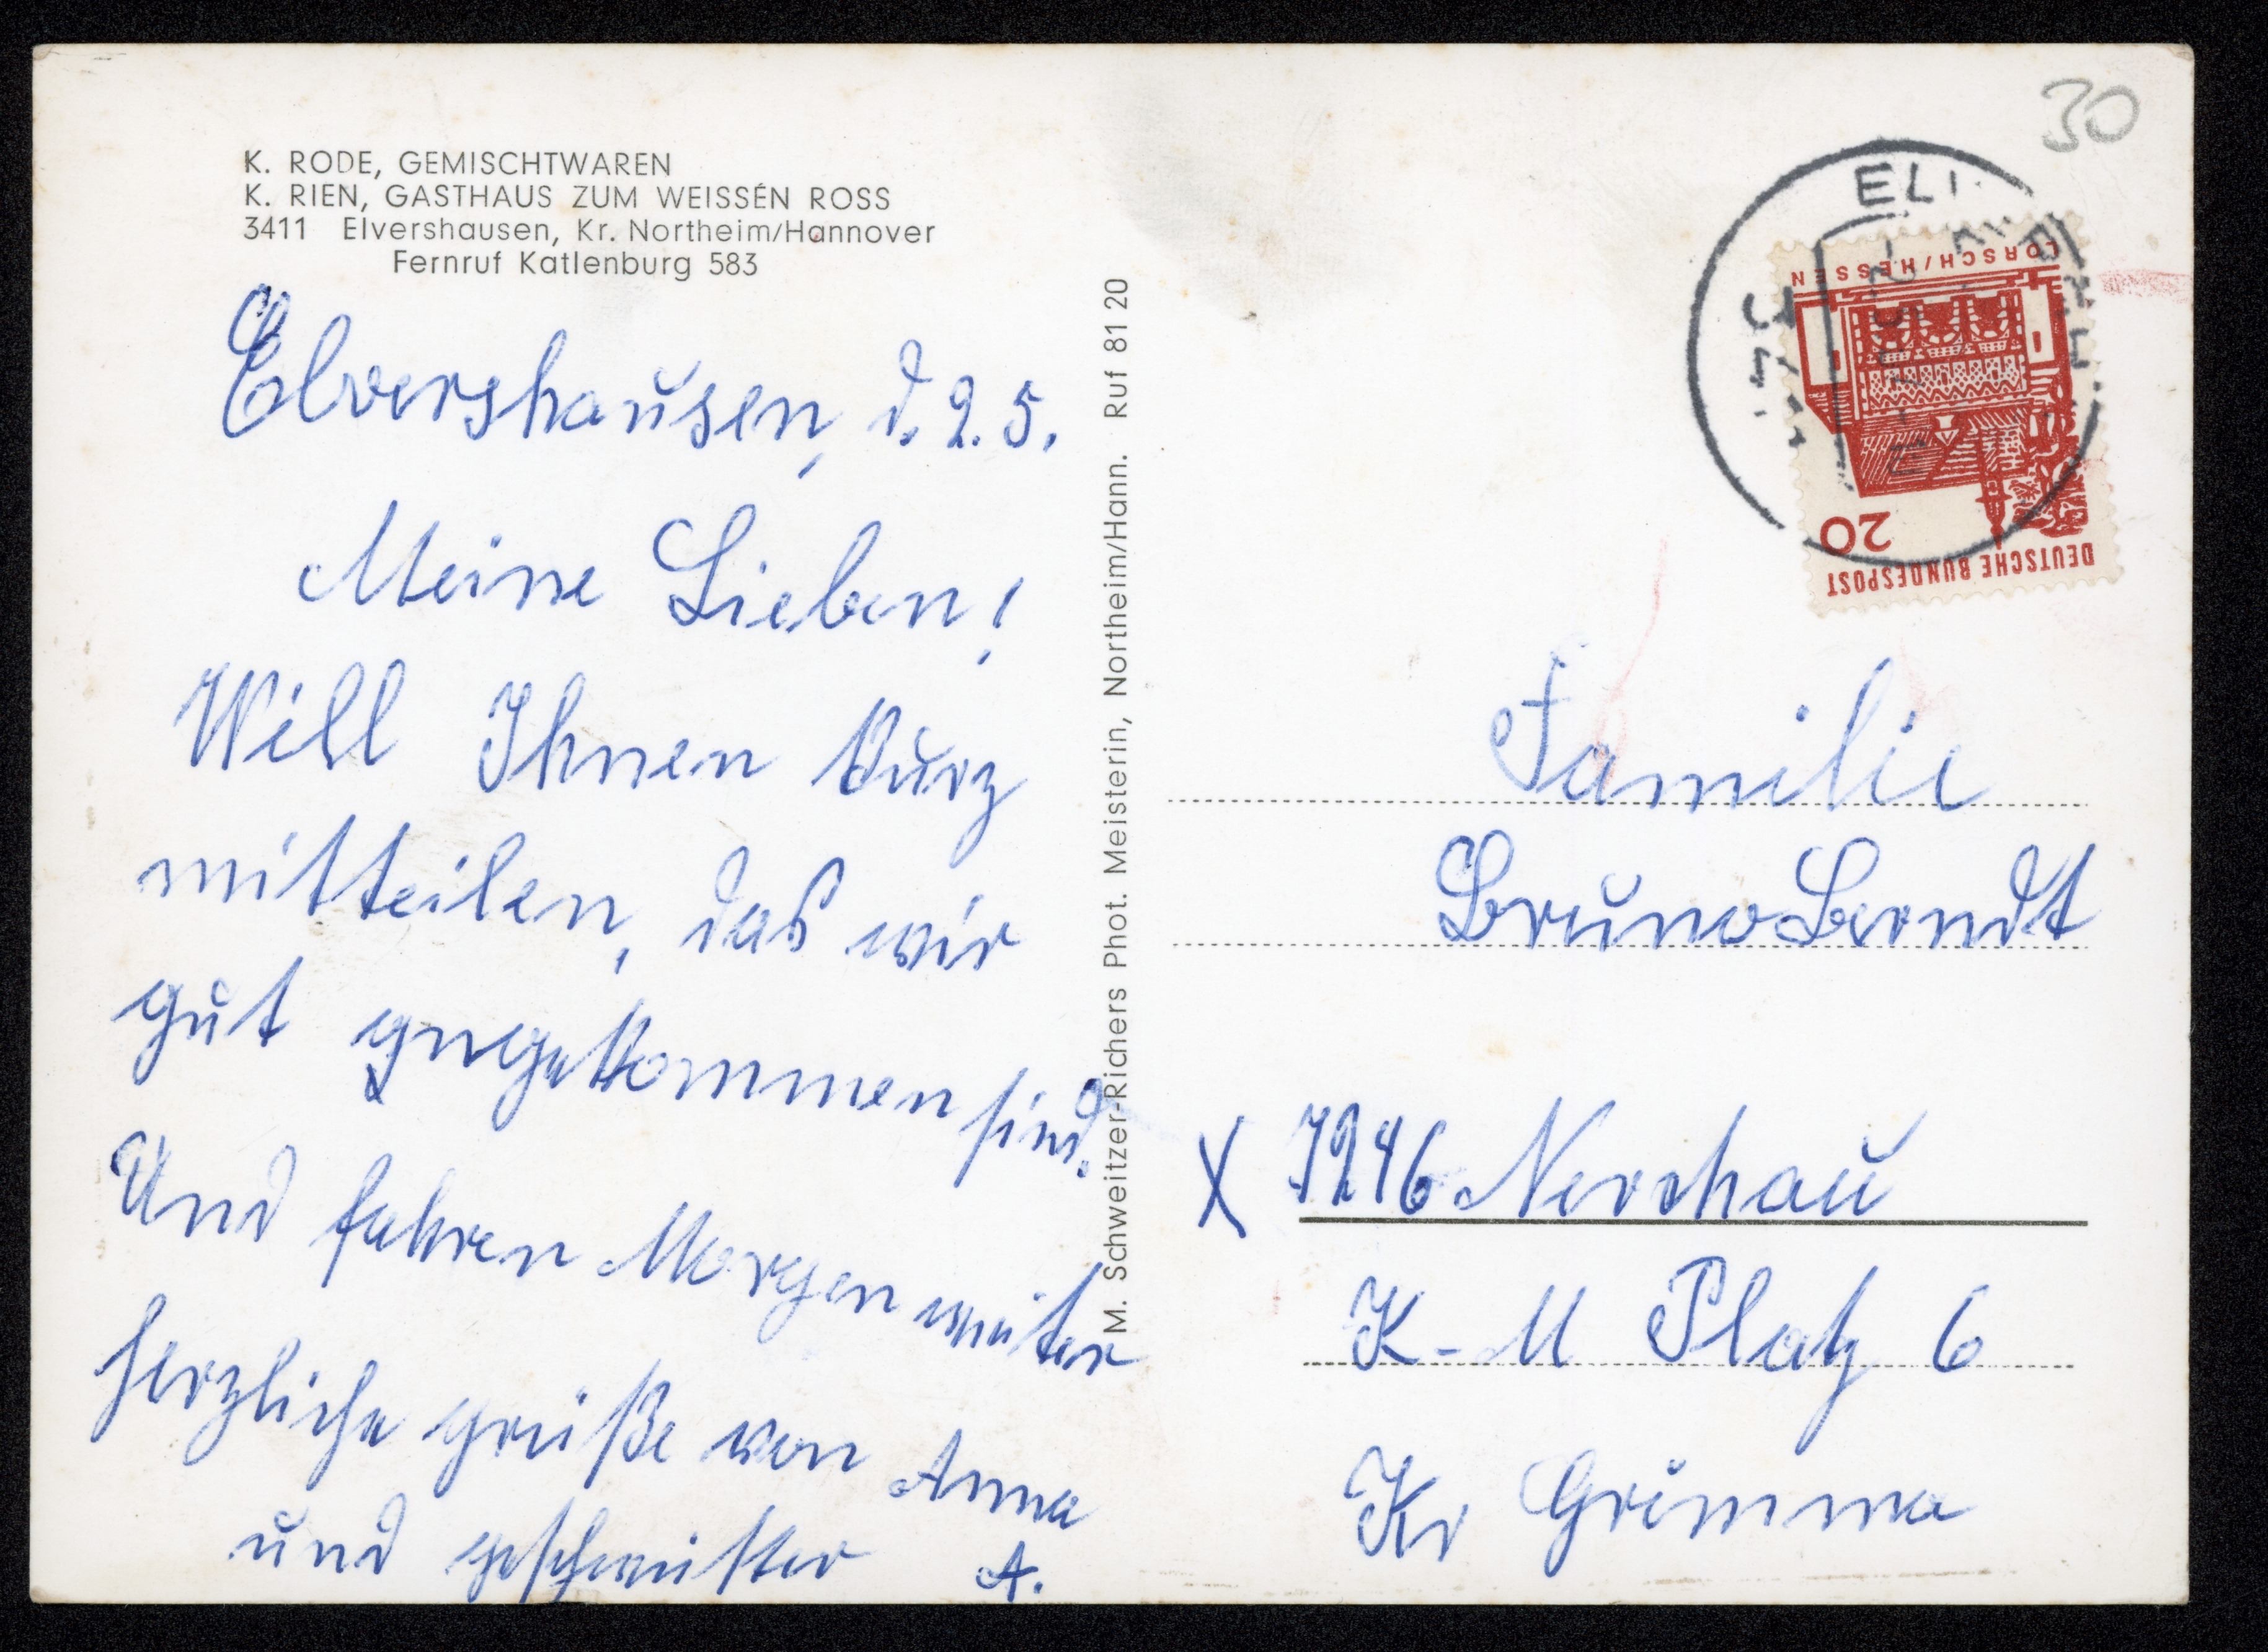 K. RODE, GEMISCHTWAREN
K. RIEN, GASTHAUS ZUM WEISSEN ROSS
3411 Elvershausen, Kr. Northeim/Hannover
Fernruf Katlenburg 583
Elvershausen, d. 2. 5.
Meine Lieben!
Will Ihnen kurz
mitteilen, das wir
gut angekommen sind.
Und fahren Morgen weiter
herzliche grüße von Anna
und geschwister A.
M. Schweitzer-Richers Phot. Meisterin, Northeim/Hann. Ruf 81 20
30
LORSCH/HESSEN
20
DEUTSCHE BUNDESPOST
Familie
Bruno Berndt
X 7246 Nerchau
K-M Platz 6
Kr Grimma